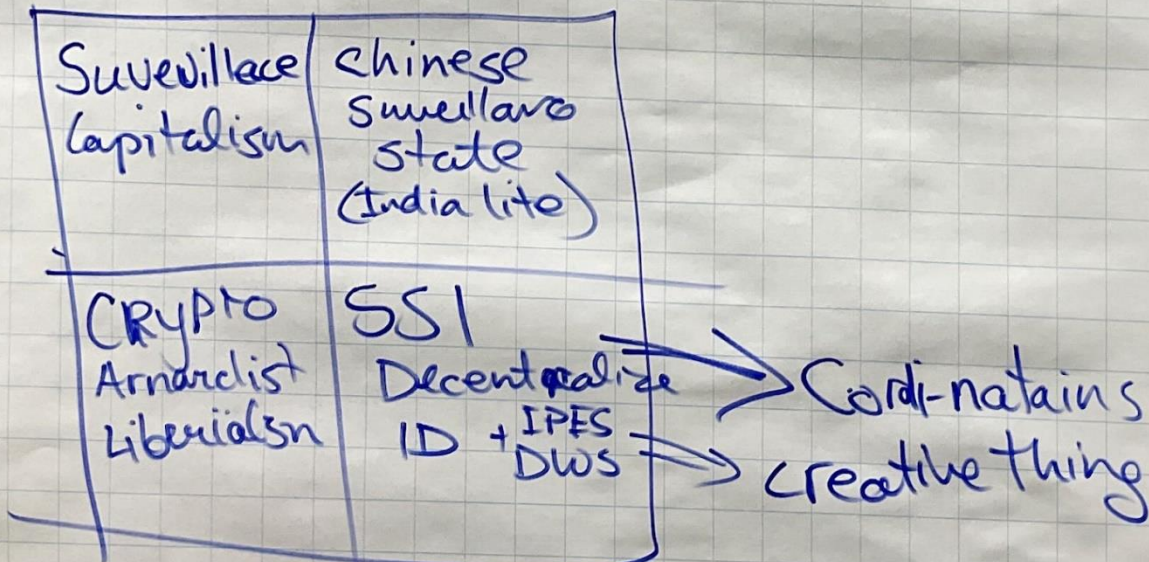 Suvevillace
Capitalism
Chinese
Suvellavo
state
(India lite)
CRYPTO
Arnarclist
Liberialsn
SSI
Decentralize
ID + IPES
DWS
Cordi-natains
creative thing